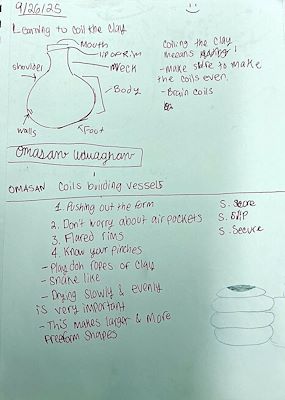 9/26/25
Learning to coil the clay
Mouth
lip or rim
Neck
shoulder
Body
walls
Foot
coiling the clay
means
- Make sure to make
the coils even.
- Brain coils
Omasan Uduaghan
OMASAN Coils building vessels
1. Pushing out the form
2. Don't worry about air pockets
3. Flared rims
4. Know your pinches
S. Score
S. Slip
S. Secure
- Play doh ropes of clay
- Snake like
- Drying slowly & evenly
is very important
- This makes larger & more
freeform shapes